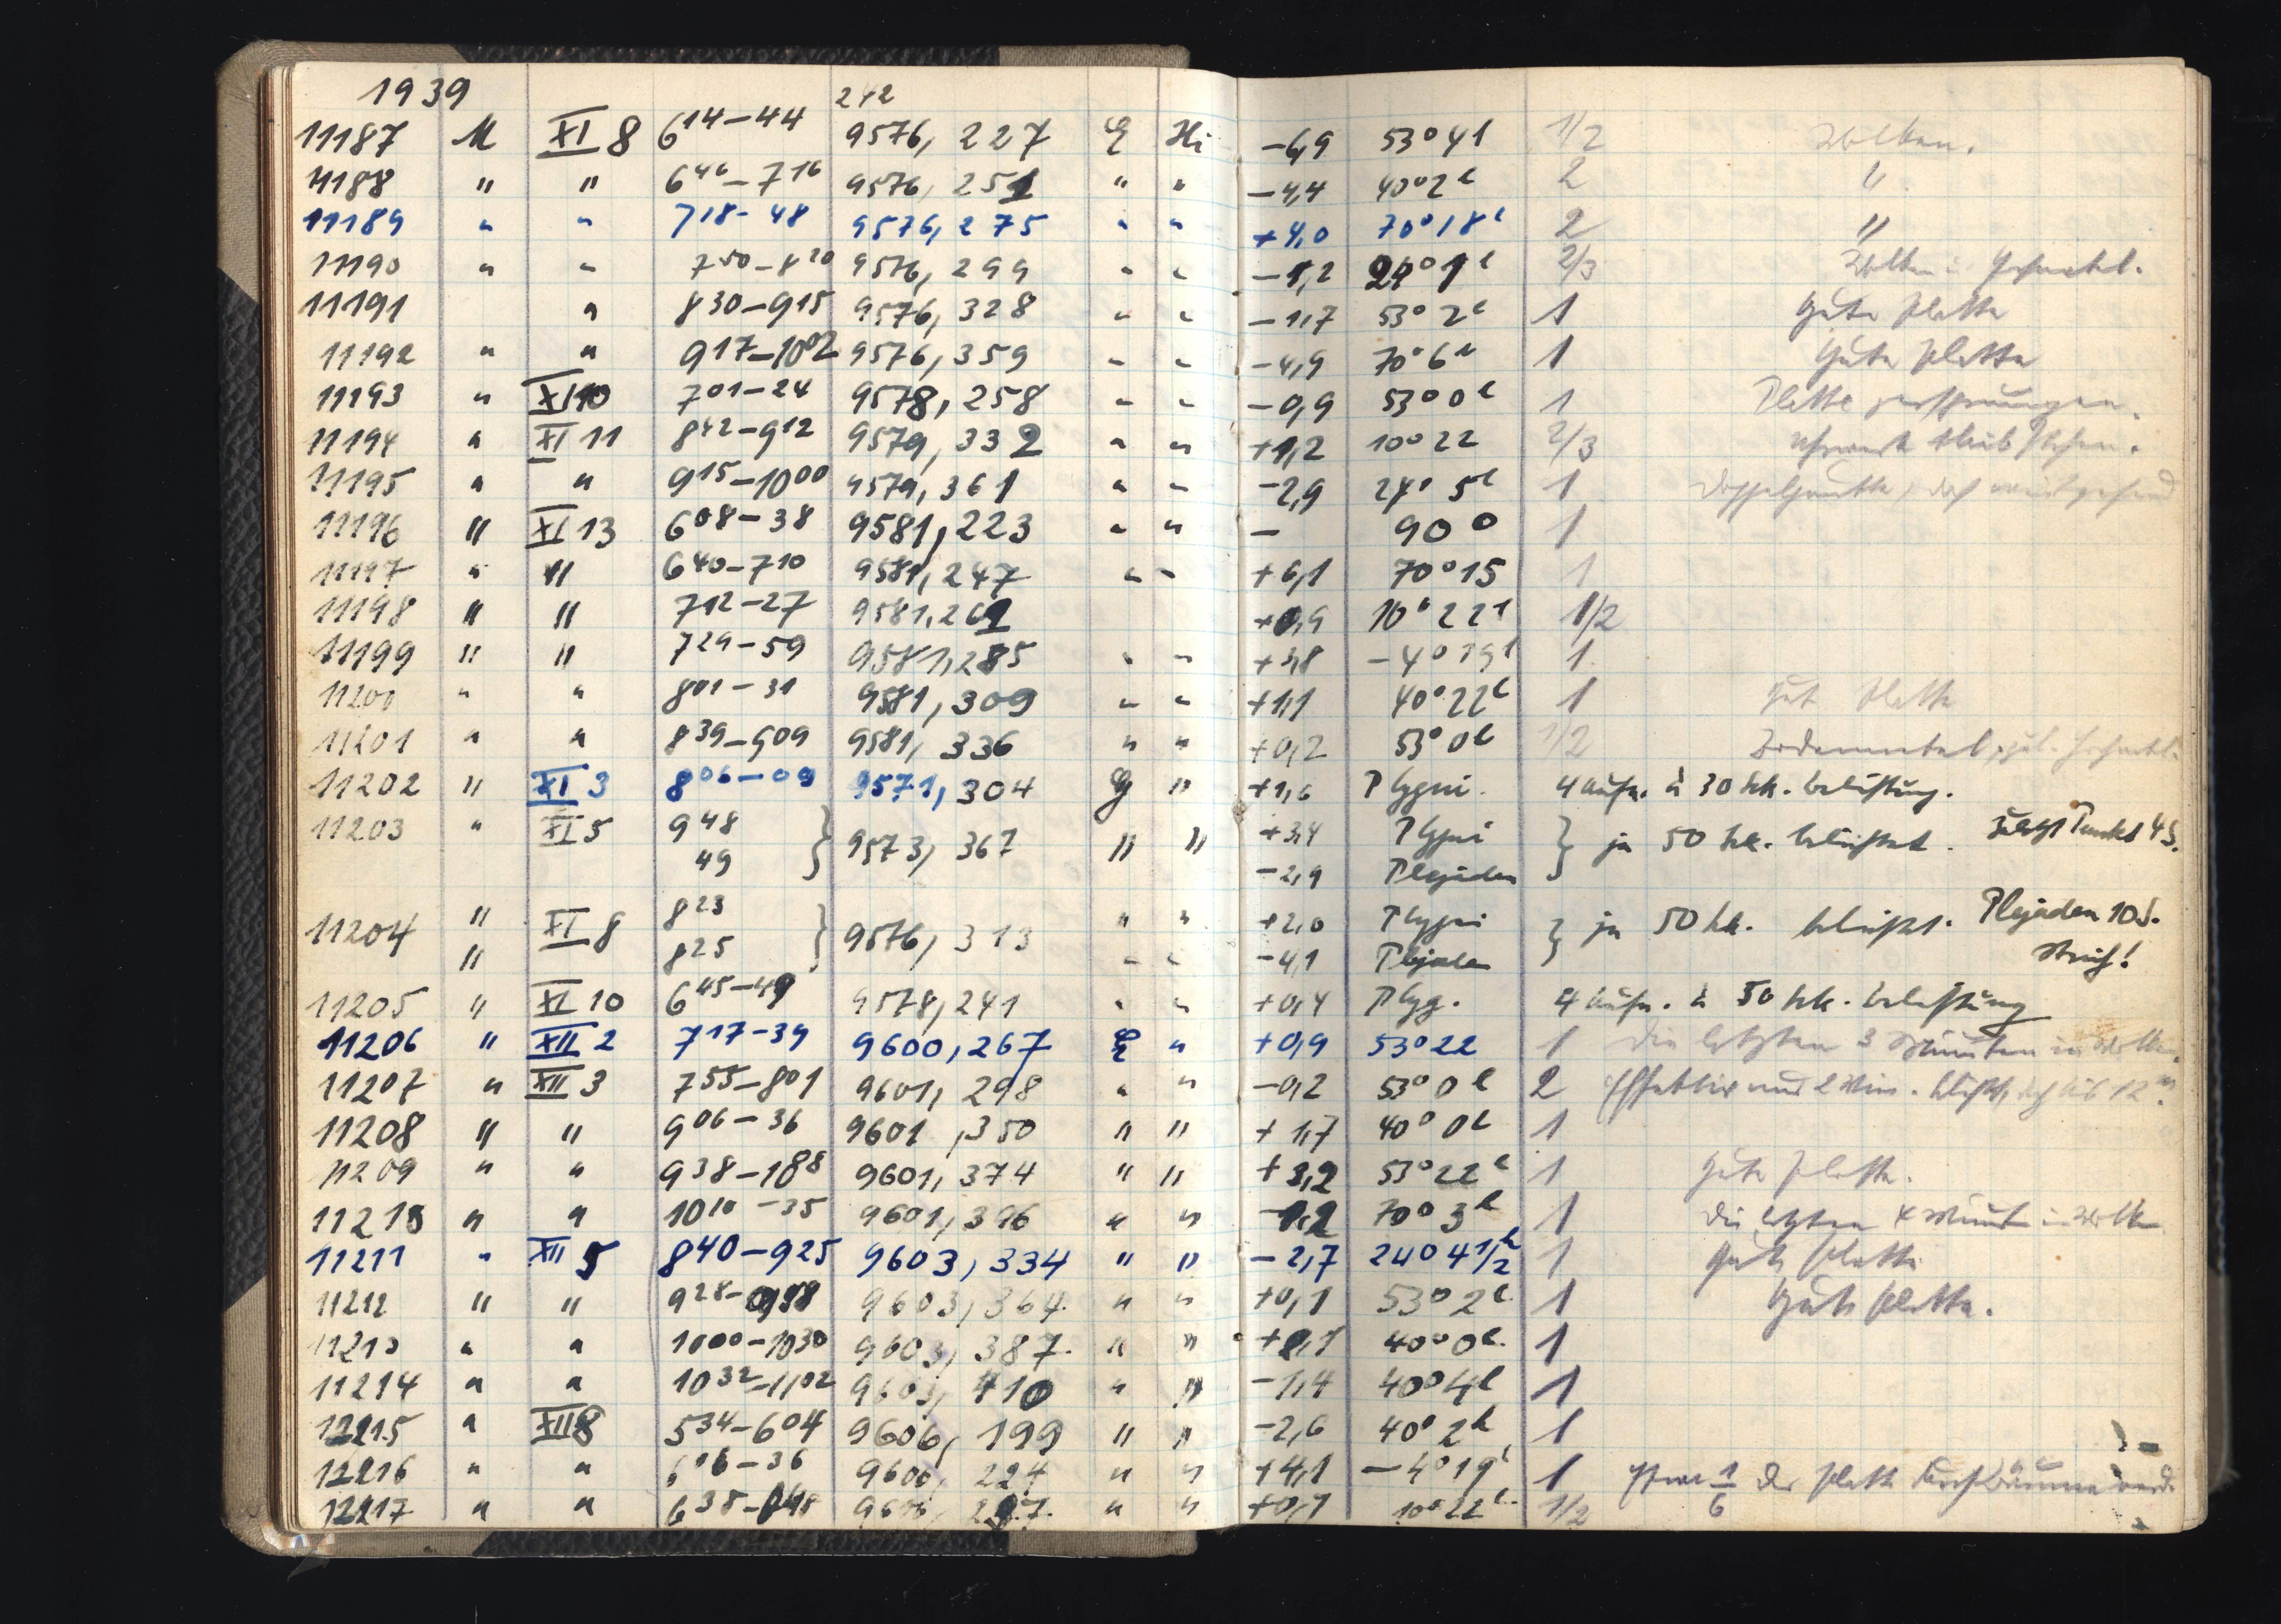 1939 242
11187 M XI 8 6 14–44 9576, 227 Hi –6,9 53° 41 1/2 Wolken.
11188 " " 6 46–7 16 9576, 251 " " –4,4 40° 2h 2 "
11189 " " 7 18–48 9576, 275 " " +4,0 70° 18h 2 "
11190 " " 7 50–8 20 9576, 299 " " –1,2 24° 1h 2/3 Wolken
11191 " 8 30–9 15 9576, 328 " " –1,7 53° 2h 1 Gute Platte
11192 " " 9 17–10 02 9576, 359 " " –4,9 70° 6h 1 Gute Platte
11193 " XI 10 7 01–24 9578, 258 " " –0,9 53° 0h 1 Platte zersprungen.
11194 " XI 11 8 42–9 12 9579, 332 " " +1,2 10° 22 2/3 Uhrwerk blieb stehen.
11195 " " 9 15–10 00 9579, 361 " " –2,9 24° 5h 1
11196 " XI 13 6 08–38 9581, 223 " " – 90° 1
11197 " " 6 40–7 10 9581, 247 " " +6,1 70° 15 1
11198 " " 7 12–27 9581, 261 +0,9 10° 22h 1/2
11199 " " 7 29–59 9581, 285 " " +3,8 –4° 19h 1
11200 " " 8 01–31 9581, 309 " " +1,1 40° 22h 1 Gute Platte
11201 " " 8 39–9 09 9581, 336 " " +0,2 53° 0h 1/2 Bodennebel
11202 " XI 3 8 06–09 9571, 304 " +1,6 P Cygni. 4 Aufn. à 30 Sek. Belichtung.
11203 " XI 5 9 48 49 } 9573, 367 " " +3,4 P Cygni } je 50 Sek. belichtet. Zuletzt Punkt 4 S.
–2,9 Plejaden
11204 " XI 8 8 23 } 9576, 313 " " +2,0 P Cygni } je 50 Sek. belichtet. Plejaden 10 S.
" 8 25 " " –4,1 Plejaden Strich!
11205 " XI 10 6 45–49 9578, 241 " " +0,4 P Cyg. 4 Aufn. à 50 Sek. Belichtung
11206 " XII 2 7 17–39 9600, 267 " +0,9 53° 22 1 Die letzten 3 Minuten in Wolken.
11207 " XII 3 7 55–8 01 9601, 298 " " –0,2 53° 0h 2 Effektiv nur 2 Min.
11208 " " 9 06–36 9601, 350 " " +1,7 40° 0h 1
11209 " " 9 38–10 08 9601, 374 " " +3,2 53° 22h 1 Gute Platte.
11210 " " 10 10–35 9601, 396 " " 70° 3h 1 Die letzten 4 Minuten in Wolken
11211 " XII 5 8 40–9 25 9603, 334 " " –2,7 24° 4 1/2h 1 Gute Platte
11212 " " 9 28–9 58 9603, 364 " " +0,1 53° 2h 1 Gute Platte.
11213 " " 10 00–10 30 9603, 387 " " 40° 0h 1
11214 " " 10 32–11 02 9603, 410 " " –1,4 40° 4h 1
12215 " XII 8 5 34–6 04 9606, 199 " " –2,6 40° 2h 1
12216 " " 6 06–36 9606, 224 " " +4,1 –4° 19h 1 Etwa 1/6 der Platte durch Bäume
12217 " " 6 38– " " +0,1 10° 22h 1/2